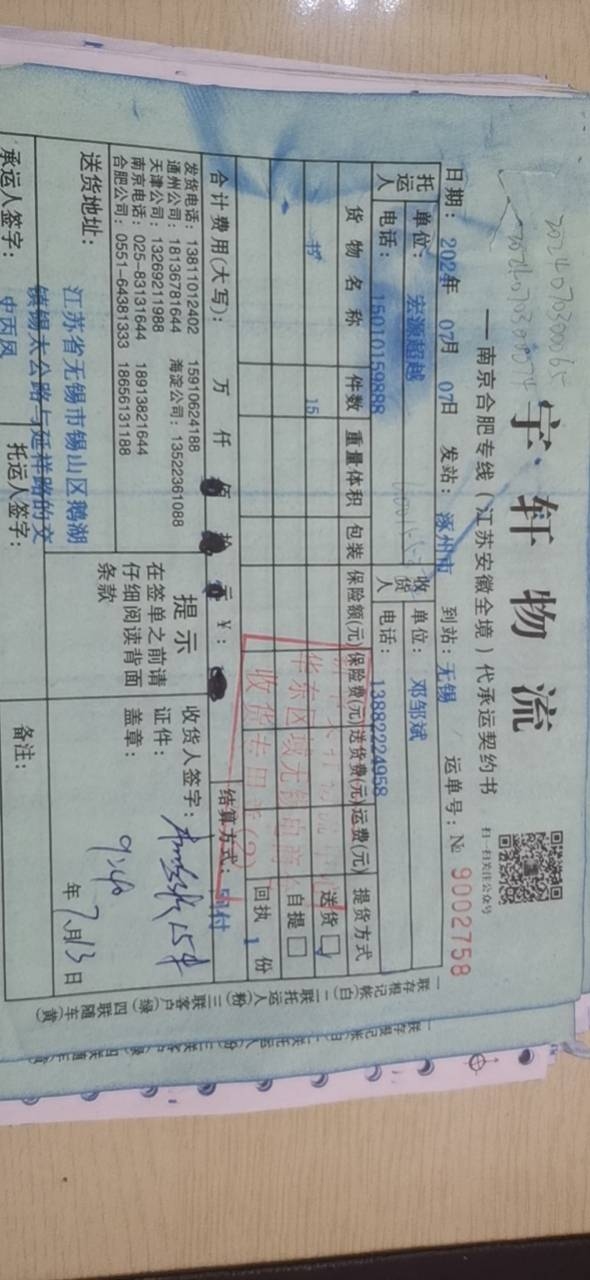 2024070300065
宇·轩物流
扫一扫关注公众号
——南京合肥专线（江苏安徽全境）代承运契约书
日期：2024年 07月 07日 发站：涿州市 到站：无锡 运单号：№ 9002758
托运人 单位：宏源超越 收货人 单位：邓邹斌
电话：15010159888 电话：13882224958
货物名称 件数 重量体积 包装 保险额(元) 保险费(元) 送货费(元) 运费(元) 提货方式
书 15 送货
自提
回执 1 份
华东区域无锡电商
收货专用章(2)
合计费用(大写)： 万 仟 佰 拾 元 ￥： 结算方式： 付
发货电话：13811012402 15910624188
通州公司：18136781644 海淀公司：13522361088
天津公司：13269211988
南京电话：025-83131644 18913821644
合肥公司：0551-64381333 18656131188
提示
在签单之前请
仔细阅读背面
条款
收货人签字： 15件
证件：
盖章： 9:40
年 7月13日
送货地址：江苏省无锡市锡山区鹅湖
镇锡太公路与延祥路的交
承运人签字：申丙凤 托运人签字： 备注：
一联存根记帐(白) 二联托运人(粉) 三联客户(绿) 四联随车(黄)